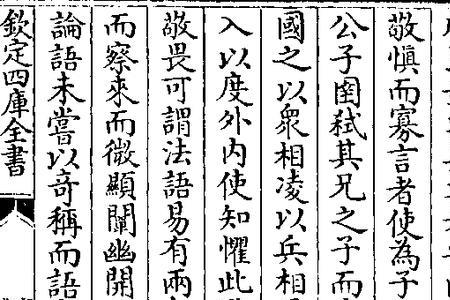 敬慎而寡言者使為子
公子圉弑其兄之子而
國之以衆相凌以兵相
入以度外内使知懼此
敬畏可謂法語易有兩
而察來而微顯闡幽開
論語未嘗以奇稱而語
欽定四庫全書